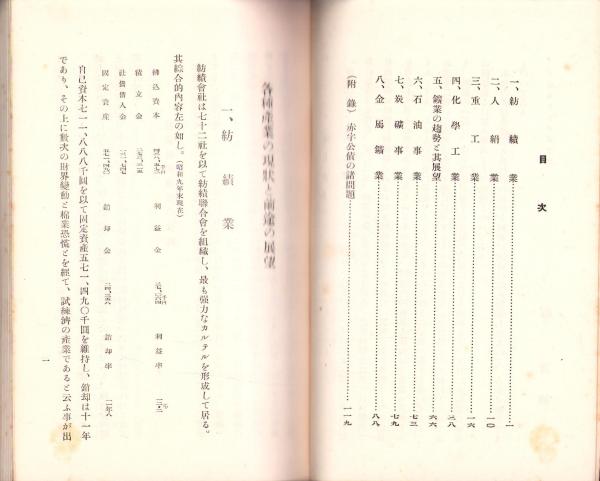 目次
一、紡績業…………一
二、人絹業…………一〇
三、重工業…………一六
四、化學工業…………三八
五、鑛業の趨勢と其展望…………六六
六、石油事業…………七三
七、炭礦事業…………七九
八、金属鑛業…………八八
(附錄)赤字公債の諸問題…………一一九
各種產業の現狀と前途の展望
一、紡績業
紡績會社は七十二社を以て紡績聯合會を組織し、最も强力なカルテルを形成して居る。
其綜合的內容左の如し。(昭和九年末現在)
拂込資本 利益金 利益率
積立金
社債借入金
固定資產 銷却金 銷却率
自己資本七一一、八八八千圓を以て固定資產五七一、四九〇千圓を維持し、銷却は十一年
であり、その上に數次の財界變動と棉業恐慌とを經て、試練濟の產業であると云ふ事が出
一